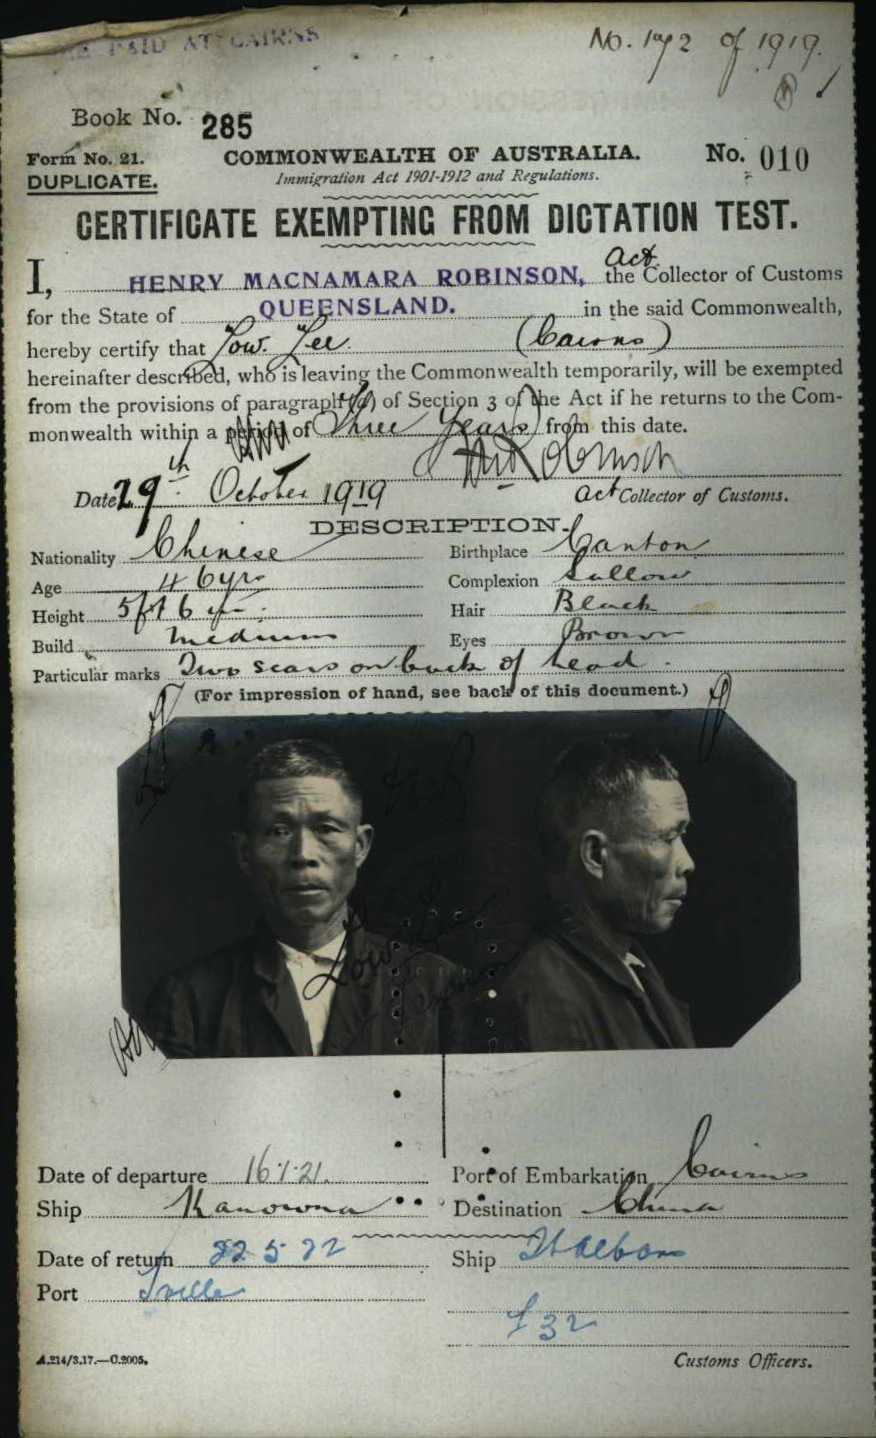 PAID AT CAIRNS
No. 192 of 1919.
Book No. 285
Form No. 21. COMMONWEALTH OF AUSTRALIA. No. 010
DUPLICATE. Immigration Act 1901-1912 and Regulations.
CERTIFICATE EXEMPTING FROM DICTATION TEST.
I, HENRY MACNAMARA ROBINSON, Act. the Collector of Customs
for the State of QUEENSLAND. in the said Commonwealth,
hereby certify that Low Lee (Cairns)
hereinafter described, who is leaving the Commonwealth temporarily, will be exempted
from the provisions of paragraph (a) of Section 3 of the Act if he returns to the Com-
monwealth within a period of Three Years from this date.
HM Robinson
Date 29th October 1919 Act Collector of Customs.
DESCRIPTION.
Nationality Chinese Birthplace Canton
Age 46 yrs Complexion Sallow
Height 5 ft 6 in Hair Black
Build Medium Eyes Brown
Particular marks Two scars on back of head.
(For impression of hand, see back of this document.)
Low Lee
Date of departure 16.1.21. Port of Embarkation Cairns
Ship Kanowna Destination China
Date of return 22 5 22 Ship St Albans
Port Tville
£32
A.214/3.17.—C.2005. Customs Officers.